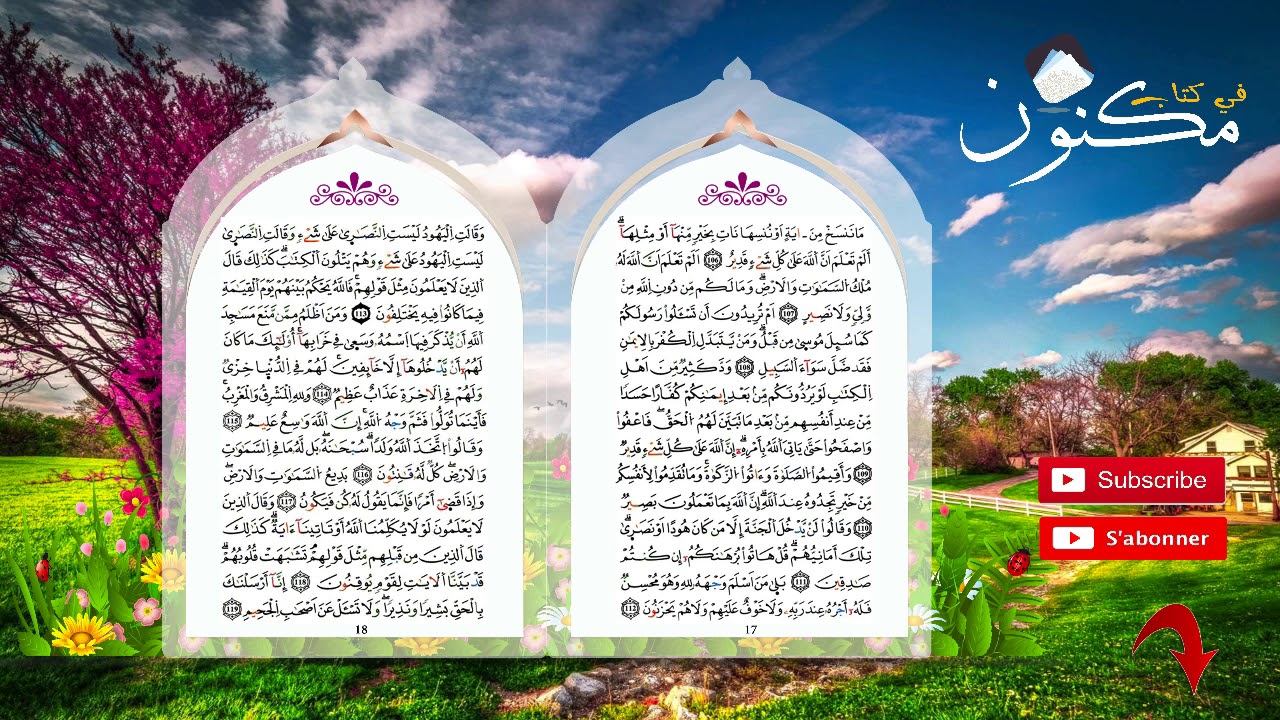 في كتاب
مكنون
مَا نَنسَخْ مِنَ ـ ايَةٍ اَوْ نُنسِهَا نَاتِ بِخَيْرٍ مِّنْهَآ أَوْ مِثْلِهَآۗ
أَلَمْ تَعْلَمَ اَنَّ اَللَّهَ عَلَىٰ كُلِّ شَےْءٍ قَدِيرٌ 106 اَلَمْ تَعْلَمَ اَنَّ اَللَّهَ لَهُۥ
مُلْكُ اُلسَّمَٰوَٰتِ وَالَارْضِ وَمَا لَكُم مِّن دُونِ اِللَّهِ مِنْ
وَّلِيٍّ وَلَا نَصِيرٍ 107 اَمْ تُرِيدُونَ أَن تَسْـَٔلُوا رَسُولَكُمْ
كَمَا سُيِلَ مُوسۭيٰ مِن قَبْلُۖ وَمَنْ يَّتَبَدَّلِ اِلْكُفْرَ بِالِايمَٰنِ
فَقَد ضَّلَّ سَوَآءَ اَلسَّبِيلِ 108 وَدَّ كَثِيرٌ مِّنَ اَهْلِ
اِلْكِتَٰبِ لَوْ يَرُدُّونَكُم مِّنۢ بَعْدِ إِيمَٰنِكُمْ كُفَّارًا حَسَدًا
مِّنْ عِندِ أَنفُسِهِم مِّنۢ بَعْدِ مَا تَبَيَّنَ لَهُمُ اُلْحَقُّۖ فَاعْفُوا
وَاصْفَحُوا حَتَّىٰ يَاتِيَ اَللَّهُ بِأَمْرِهِۦٓۖ إِنَّ اَللَّهَ عَلَىٰ كُلِّ شَےْءٍ قَدِيرٌ
109 وَأَقِيمُوا اُلصَّلَوٰةَ وَءَاتُوا اُلزَّكَوٰةَۖ وَمَا تُقَدِّمُوا لِأَنفُسِكُم
مِّنْ خَيْرٍ تَجِدُوهُ عِندَ اَللَّهِۖ إِنَّ اَللَّهَ بِمَا تَعْمَلُونَ بَصِيرٌ
110 وَقَالُوا لَنْ يَّدْخُلَ اَلْجَنَّةَ إِلَّا مَن كَانَ هُودًا اَوْ نَصَٰرۭيٰۖ
تِلْكَ أَمَانِيُّهُمْۖ قُلْ هَاتُوا بُرْهَٰنَكُمُۥٓ إِن كُنتُمْ
صَٰدِقِينَ 111 بَلۭيٰ مَنَ اَسْلَمَ وَجْهَهُۥ لِلهِ وَهُوَ مُحْسِنٌ
فَلَهُۥٓ أَجْرُهُۥ عِندَ رَبِّهِۦ وَلَا خَوْفٌ عَلَيْهِمْ وَلَا هُمْ يَحْزَنُونَ 112
17
وَقَالَتِ اِلْيَهُودُ لَيْسَتِ اِلنَّصَٰرۭيٰ عَلَىٰ شَےْءٍ وَقَالَتِ اِلنَّصَٰرۭيٰ
لَيْسَتِ اِلْيَهُودُ عَلَىٰ شَےْءٍ وَهُمْ يَتْلُونَ اَلْكِتَٰبَۖ كَذَٰلِكَ قَالَ
اَلذِينَ لَا يَعْلَمُونَ مِثْلَ قَوْلِهِمْۖ فَاللَّهُ يَحْكُمُ بَيْنَهُمْ يَوْمَ اَلْقِيَٰمَةِ
فِيمَا كَانُوا فِيهِ يَخْتَلِفُونَ 113 وَمَنَ اَظْلَمُ مِمَّن مَّنَعَ مَسَٰجِدَ
اَللَّهِ أَنْ يُّذْكَرَ فِيهَا اَسْمُهُۥ وَسَعۭيٰ فِي خَرَابِهَآۖ أُوْلَٰٓئِكَ مَا كَانَ
لَهُمُۥٓ أَنْ يَّدْخُلُوهَآ إِلَّا خَآئِفِينَۖ لَهُمْ فِي اِلدُّنْيۭا خِزْيٌ
وَلَهُمْ فِي اِلَاخِرَةِ عَذَابٌ عَظِيمٌ 114 وَلِلهِ اِلْمَشْرِقُ وَالْمَغْرِبُۖ
فَأَيْنَمَا تُوَلُّوا فَثَمَّ وَجْهُ اُللَّهِۖ إِنَّ اَللَّهَ وَٰسِعٌ عَلِيمٌ 115
وَقَالُوا اُتَّخَذَ اَللَّهُ وَلَدًاۖ سُبْحَٰنَهُۥۖ بَل لَّهُۥ مَا فِي اِلسَّمَٰوَٰتِ
وَالَارْضِۖ كُلٌّ لَّهُۥ قَٰنِتُونَ 116 بَدِيعُ اُلسَّمَٰوَٰتِ وَالَارْضِۖ
وَإِذَا قَضۭيٰٓ أَمْرًا فَإِنَّمَا يَقُولُ لَهُۥ كُن فَيَكُونُ 117 وَقَالَ اَلذِينَ
لَا يَعْلَمُونَ لَوْلَا يُكَلِّمُنَا اَللَّهُ أَوْ تَاتِينَآ ءَايَةٌۖ كَذَٰلِكَ
قَالَ اَلذِينَ مِن قَبْلِهِم مِّثْلَ قَوْلِهِمْۖ تَشَٰبَهَتْ قُلُوبُهُمْۖ
قَدْ بَيَّنَّا اَلَايَٰتِ لِقَوْمٍ يُوقِنُونَ 118 إِنَّآ أَرْسَلْنَٰكَ
بِالْحَقِّ بَشِيرًا وَنَذِيرًاۖ وَلَا تَسْـَٔلْ عَنَ اَصْحَٰبِ اِلْجَحِيمِۖ 119
18
Subscribe
S'abonner